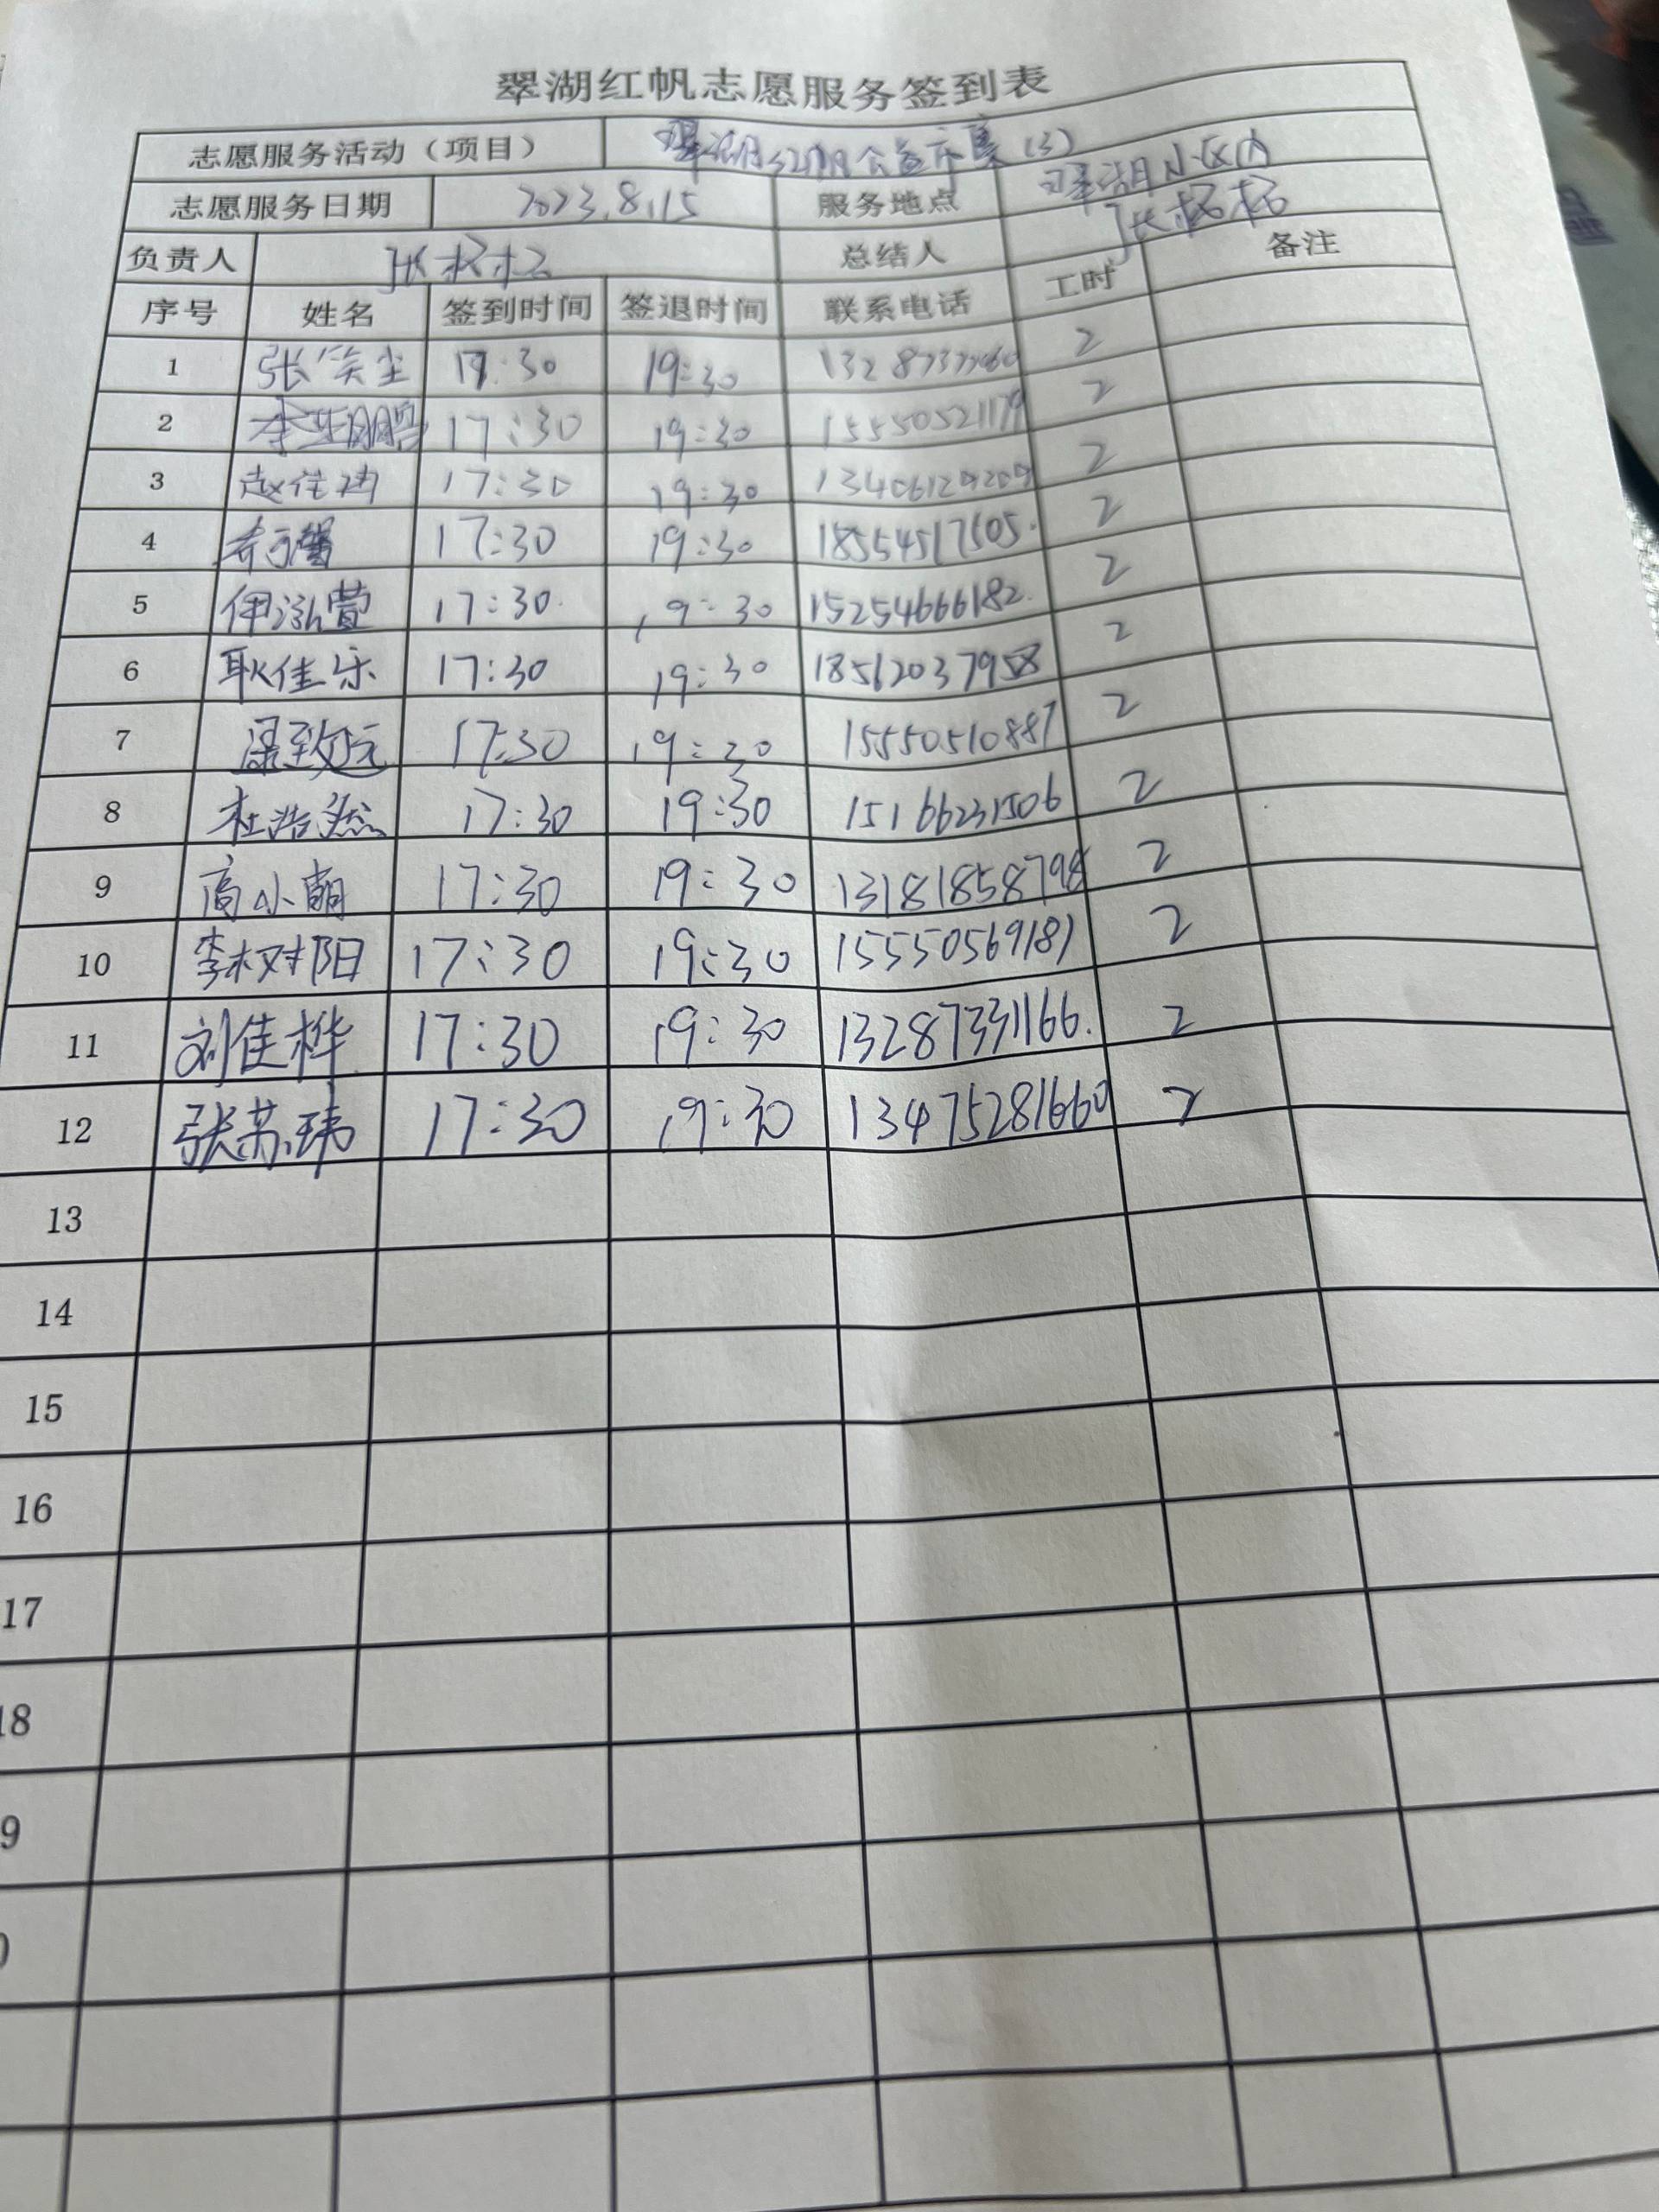 翠湖红帆志愿服务签到表
志愿服务活动（项目） 翠湖红帆公益市集（3）
志愿服务日期 2023.8.15 服务地点 翠湖小区内
负责人 张 总结人 张
序号 姓名 签到时间 签退时间 联系电话 工时 备注
1 张笑尘 17:30 19:30 2
2 李华鹏 17:30 19:30 15550521179 2
3 赵佳 17:30 19:30 13406129209 2
4 17:30 19:30 18554517505 2
5 伊泓萱 17:30 19:30 15254666182 2
6 耿佳乐 17:30 19:30 18562037958 2
7 梁致远 17:30 19:30 15550510887 2
8 杜浩然 17:30 19:30 15166231506 2
9 高小萌 17:30 19:30 13181858798 2
10 李树阳 17:30 19:30 15550569181 2
11 刘佳桦 17:30 19:30 13287331166 2
12 张苏玮 17:30 19:30 13475281660 2
13
14
15
16
17
18
9
0